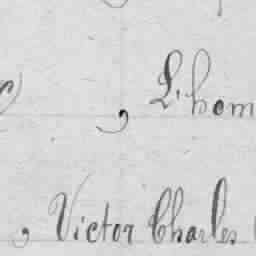 , L'hom
, Victor Charles